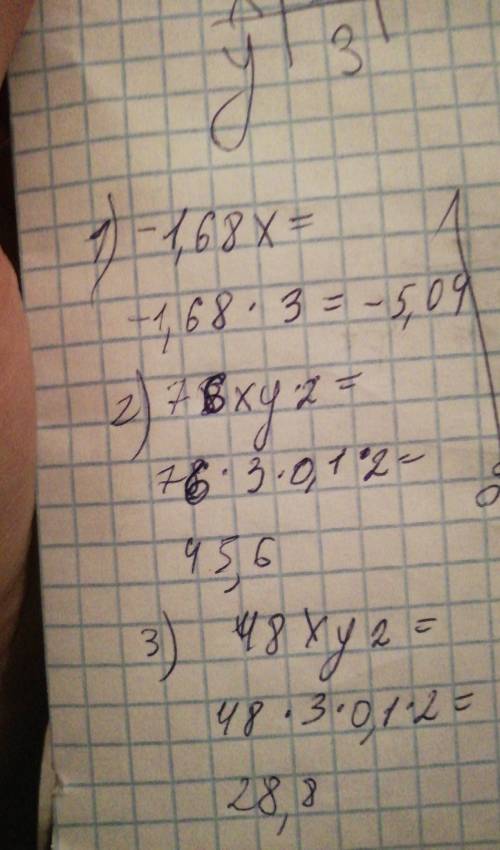 y 3
1) -1,68x=
-1,68·3=-5,04
2) 76xy·2=
76·3·0,1·2=
45,6
3) 48xy2=
48·3·0,1·2=
28,8